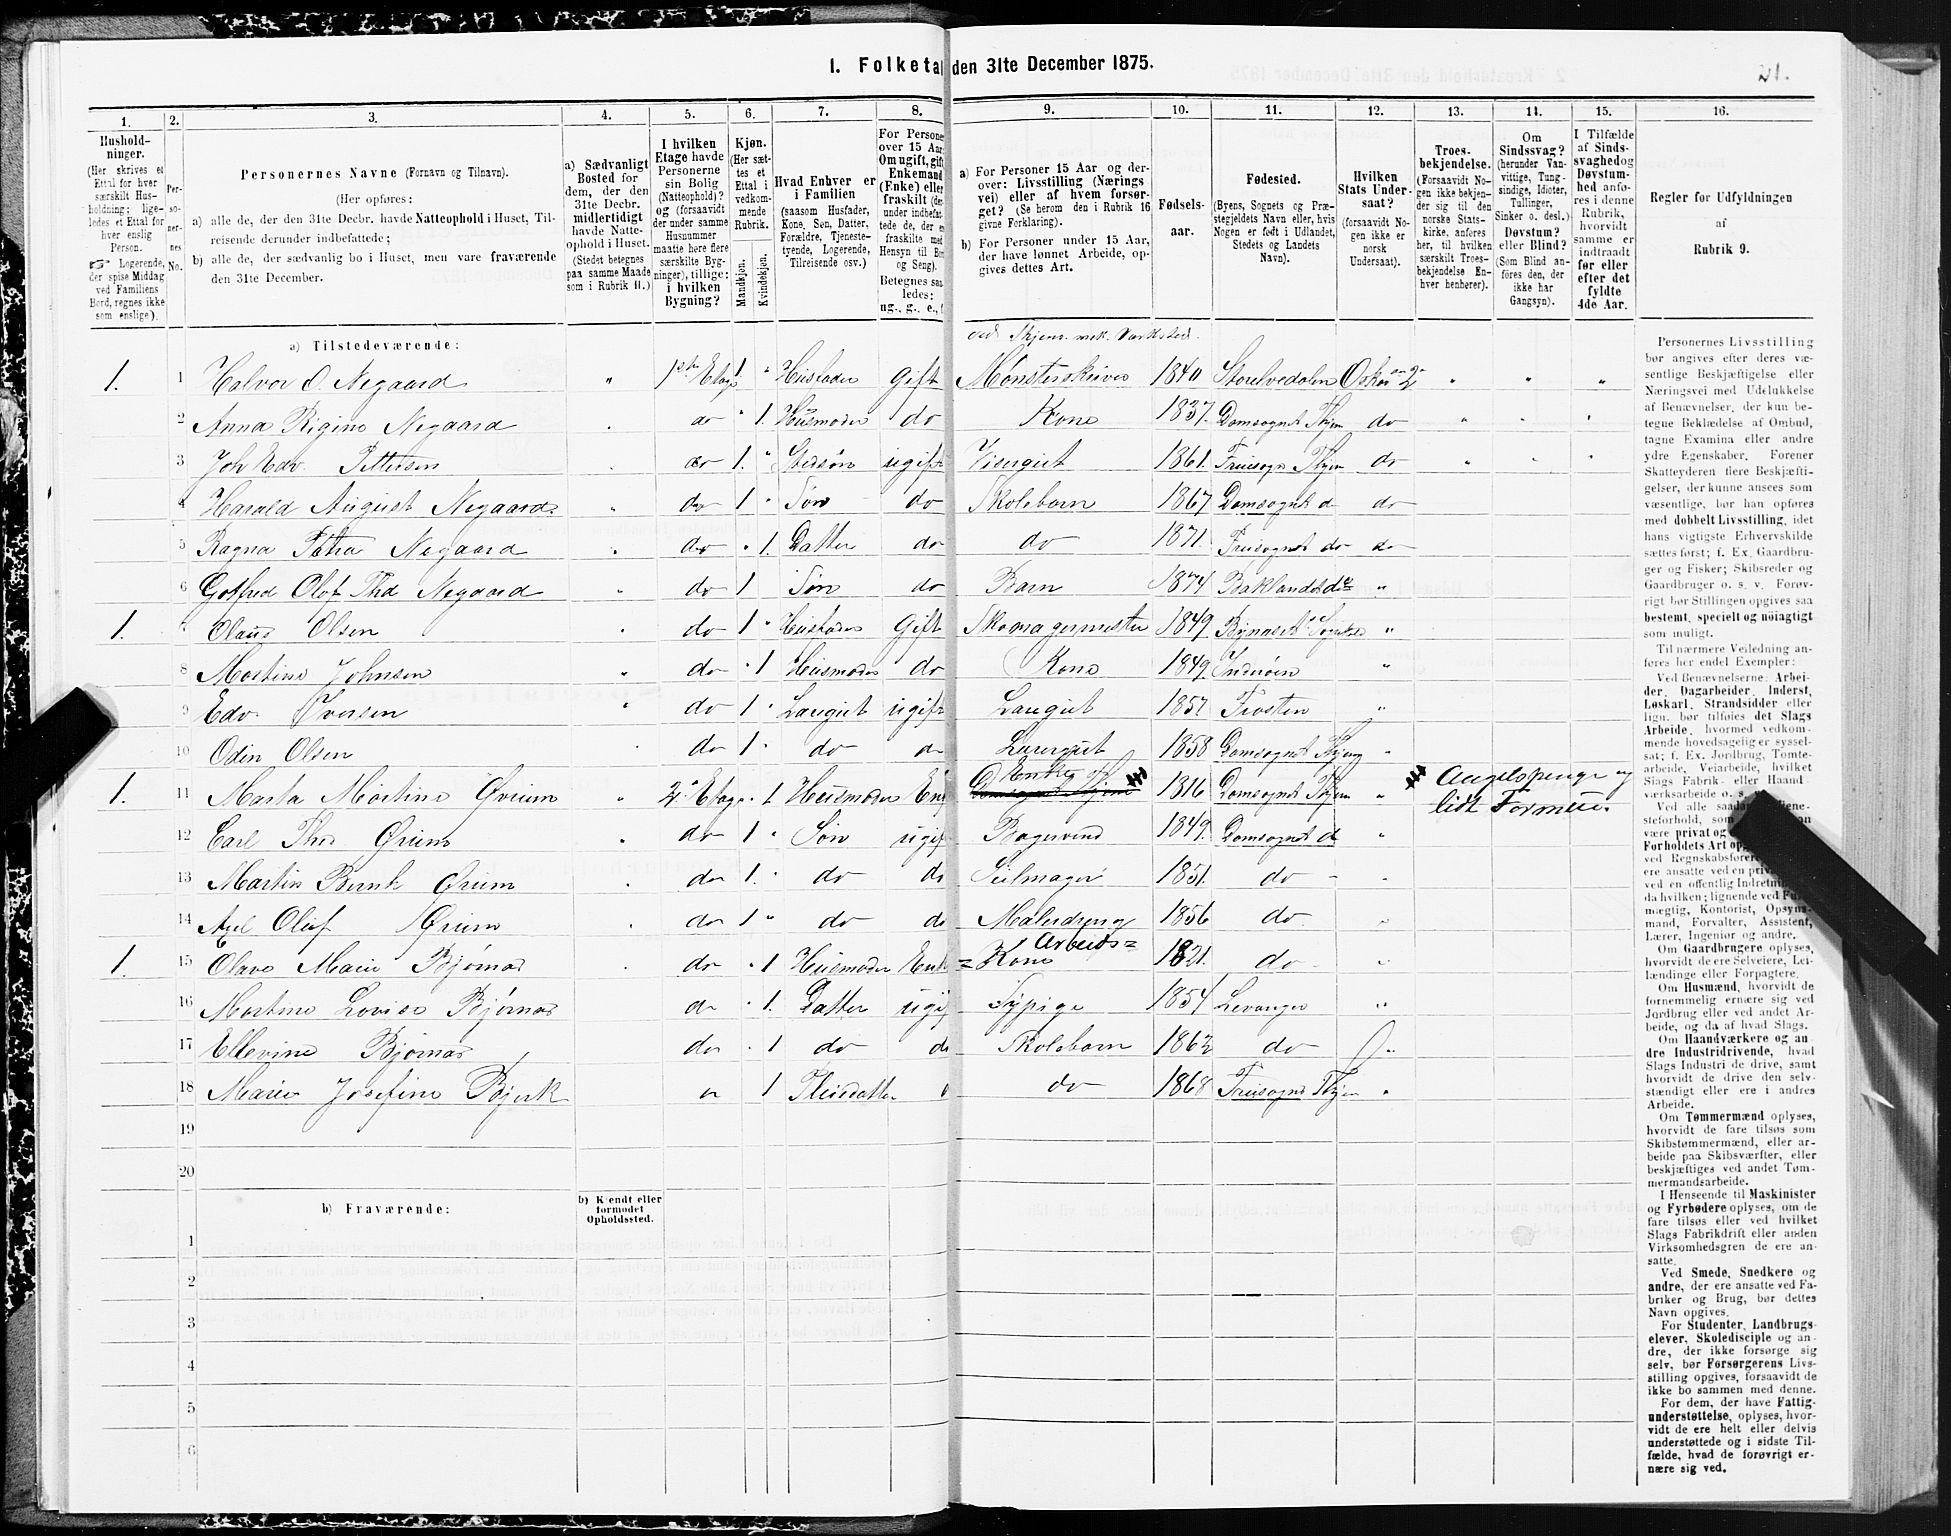 1. Folketal den 31te December 1875.
21.
1. 2. 3. 4. 5. 6. 7. 8. 9. 10. 11. 12. 13. 14. 15. 16.
Hushold-
ninger.
(Her skrives et
Ettal for hver
særskilt Hus-
holdning; lige-
ledes et Ettal for
hver enslig
Person.
☞ Logerende,
der spise Middag
ved Familiens
Bord, regnes ikke
som enslige).
Per-
so-
ner-
nes
No.
Personernes Navne (Fornavn og Tilnavn).
(Her opføres:
a) alle de, der den 31te Decbr. havde Natteophold i Huset, Til-
reisende derunder indbefattede;
b) alle de, der sædvanlig bo i Huset, men vare fraværende
den 31te December.
a) Sædvanligt
Bosted for
dem, der den
31te Decbr.
midlertidigt
havde Natte-
ophold i Huset.
(Stedet betegnes
paa samme Maade
som i Rubrik 11.)
I hvilken
Etage havde
Personerne
sin Bolig
(Natteophold)?
og (forsaavidt
der under samme
Husnummer
maatte høre flere
særskilte Byg-
ninger), tillige:
i hvilken
Bygning?
Kjøn.
(Her sæt-
tes et
Ettal i
vedkom-
mende
Rubrik.
Mandkjøn.
Kvindekjøn.
Hvad Enhver er
i Familien
(saasom Husfader,
Kone, Søn, Datter,
Forældre, Tjeneste-
tyende, Logerende,
Tilreisende osv.)
For Persone
over 15 Aar
Om ugift, gift
Enkemand
(Enke) eller
fraskilt (de
under indbefat-
tede de, der e
fraskilte med
Hensyn til Bo
og Seng).
Betegnes saa
ledes:
ug., g., e.,
a) For Personer 15 Aar og der-
over: Livsstilling (Nærings
vei) eller af hvem forsør-
get? (Se herom den i Rubrik 16
givne Forklaring).
b) For Personer under 15 Aar,
der have lønnet Arbeide, op-
gives dettes Art.
Fødsels-
aar.
Fødested.
(Byens, Sognets og Præ-
stegjeldets Navn eller, hvis
Nogen er født i Udlandet,
Stedets og Landets
Navn).
Hvilken
Stats Under-
saat?
(forsaavidt No-
gen ikke er
norsk
Undersaat).
Troes-
bekjendelse.
(Forsaavidt No-
gen ikke bekjen-
der sig til den
norske Stats-
kirke, anføres
her, til hvilken
særskilt Troes-
bekjendelse En-
hver henhører).
Om
Sindssvag?
(herunder Van-
vittige, Tung-
sindige, Idioter,
Tullinger,
Sinker o. desl.)
Døvstum?
eller Blind?
(Som Blind an-
føres den, der
ikke har
Gangsyn).
I Tilfælde
af Sinds-
svaghed og
Døvstum-
hed anfø-
res i denne
Rubrik,
hvorvidt
samme er
indtraadt
før eller
efter det
fyldte
4de Aar.
Regler for Udfyldningen
af
Rubrik 9.
a) Tilstedeværende:
ved Thjems mek. Værksted.
1. 1 Halvor O. Negaard " 1ste Etage 1 " Husfader Gift Mønsterskriver 1840 Storelvedalen " " "
2 Anna Regine Negaard do " 1. Husmoder do Kone 1837. Domsognet Thjem do " " "
3 Joh Edv. Pettersen do 1. " Stedsøn ugift Visergut 1861. Fruesogn Thjem do " " "
4 Harald August Negaard do 1 " Søn do Skolebarn 1867 Domsognet do do
5 Ragna Petra Negaard do " 1. Datter do do 1871. Fruesognet do do
6 Gotfred Olof Thd Negaard do 1 Søn do Barn 1874 Baklandet do "
1. 7 Olaus Olsen do 1 " Husfader Gift Skomagermester 1849. Bynæset "
8 Martine Johnsen do " 1 Husmoder do Kone 1849. Inderøen "
9 Edv. Iversen do 1 " Læregut ugift Læregut 1857 Frosten "
10 Odin Olsen do 1 " do do Læregut 1858 Domsognet Thjem "
1. 11 Marta Martine Ørium " 2. Etage " 1 Husmoder Enke Enke 1816 Domsognet Thjem " Aagelspenge og
lidt Formue.
12 Carl Thd Ørium do 1 " Søn ugift Bogersvend 1849. Domsognet do "
13 Martin Bernh Ørium do 1. do do Seilmager 1851. do "
14 Axel Oluf Ørium do 1 " do do Malerdreng 1856 do "
1. 15 Olave Marie Bjørnar do " 1 Husmoder Enke Arbeids=
=Kone 1821. do "
16 Martine Lovise Bjørnar do " 1. Datter ugift Sypige 1854 Levanger "
17 Ellevine Bjørnar do " 1 do do Skolebarn 1862 do "
18 Marie Josefine Bjerk " 1 Pleiedatter do 1868 Fruesogn Thjem "
19
20
b) Fraværende:
b) Kjendt eller
formodet
Opholdssted.
1
2
3
4
5
6
Personernes Livsstilling
bør angives efter deres væ-
sentlige Beskjæftigelse eller
Næringsvei med Udelukkelse
af Benævnelser, der kun be-
tegne Beklædelse af Ombud,
tagne Examina eller andre
ydre Egenskaber. Forener
Skatteyderen flere Beskjæfti-
gelser, der kunne ansees som
væsentlige, bør han opføres
med dobbelt Livsstilling, idet
hans vigtigste Erhvervskilde
sættes først; f. Ex. Gaardbru-
ger og Fisker; Skibsreder og
Gaardbruger o. s. v. Forøv-
rigt bør Stillingen opgives saa
bestemt, specielt og nøiagtigt
som muligt.
Til nærmere Veiledning an-
føres her endel Exempler:
Ved Benævnelserne: Arbei-
der, Dagarbeider, Inderst,
Løskarl, Strandsidder eller
lign. bør tilføies det Slags
Arbeide, hvormed vedkom-
mende hovedsagelig er syssel-
sat; f. Ex. Jordbrug, Tømte-
arbeide, Veiarbeide, hvilket
Slags Fabrik- eller Haand-
værksarbeide o. s. v.
Ved alle saadanne Tjene-
steforhold, som
være privat og
Forholdets Art op
ved Regnskabsførere
ere ansatte ved en privat
ved en offentlig Indretning
da hvilken; lignende ved Fuld-
mægtig, Kontorist, Opsyns-
mand, Forvalter, Assistent,
Lærer, Ingeniør og andre.
Om Gaardbrugere oplyses,
hvorvidt de ere Selveiere, Lei-
lændinge eller Forpagtere.
Om Husmænd, hvorvidt de
fornemmelig ernære sig ved
Jordbrug eller ved andet Ar-
beide, og da af hvad Slags.
Om Haandværkere og an-
dre Industridrivende, hvad
Slags Industri de drive, samt
hvorvidt de drive den selv-
stændigt eller ere i andres
Arbeide.
Om Tømmermænd oplyses,
hvorvidt de fare tilsøs som
Skibstømmermænd, eller ar-
beide paa Skibsværfter, eller
beskjæftiges ved andet Tøm-
mermandsarbeide.
I Henseende til Maskinister
og Fyrbødere oplyses, om de
fare tilsøs eller ved hvilket
Slags Fabrikdrift eller anden
Virksomhedsgren de ere an-
satte.
Ved Smede, Snedkere og
andre, der ere ansatte ved Fa-
briker og Brug, bør dettes
Navn opgives.
For Studenter, Landbrugs-
elever, Skoledisciple og an-
dre, der ikke forsørge sig
selv, bør Forsørgerens Livs-
stilling opgives, forsaavidt de
ikke bo sammen med denne.
For dem, der have Fattig-
understøttelse, oplyses, hvor-
vidt de ere helt eller delvis
understøttede og i sidste Til-
fælde, hvad de forøvrigt er-
nære sig ved.